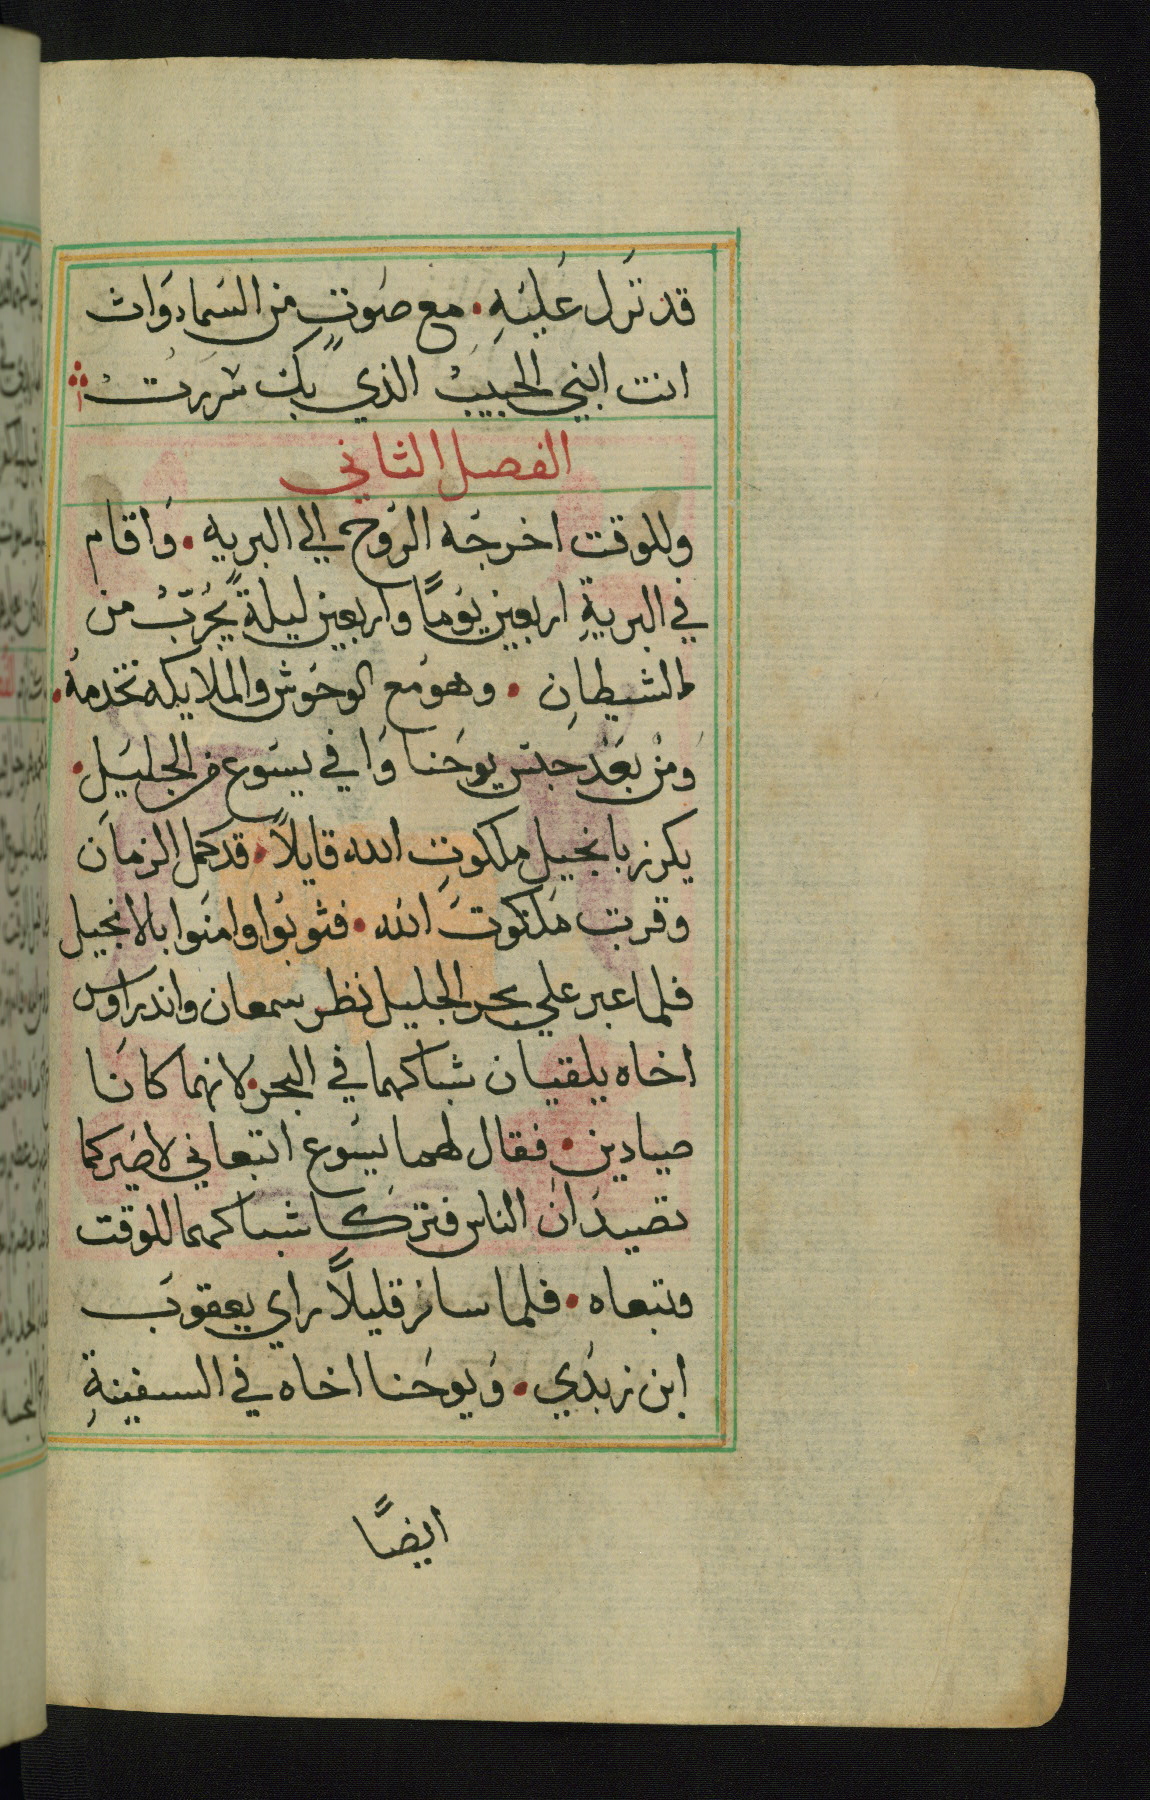 قد نزل عَليَهِ • مع صَوتٍ من السَماوَات
انت ابني الحبيبْ الذي بك سررتْ
الفصل الثاني
وللوقت اخرجَه الرَوح الي البريه • وَاقام
في البريةِ اربعين يوَماً واربعين ليلةً يُجرّبْ من
الشيطانِ • وهوَ مع الوحَوش والملايكه تخدمهُ •
وَمنْ بعَدْ حَبسَ يوحَنا وَافي يسَوع من الجليَل •
يكرز بانجيل ملكوتِ الله قايلاً • قد كمل الزمان
وقربت ملكوتَ الله • فتوبوَا وامنَوا بالانجيل
فلما عبر علي بحر الجليل نظر سمعان واندراوس
اخاه يلقيان شباكهما في البحر • لانهما كانَا
صيادين • فقال لهما يسَوع اتبعاني لاصَيركما
تصيدَان الناس فتركَا شباكهما للوقت
وتبعاه • فلما سار قليلاً راي يعقوبَ
ابن زبدَي • وَيوحَنا اخاه في السفينةِ
ايضاً